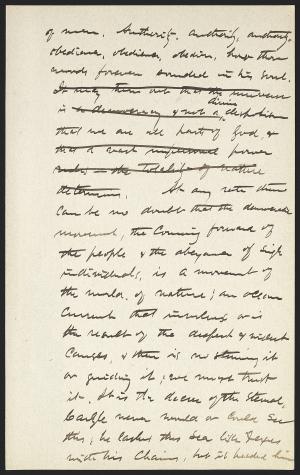 of man. Authority, authority, authority,
obedience, obedience, obedience, how those
words forever sounded in his soul.
It may turn out that the universe
is a democracy & not a divine despotism
that we are all part of God, &
that a vast impersonal power
rules — the totality of nature
determines. At any rate there
can be no doubt that the democratic
movement, the coming forward of
the people & the abeyance of single
individuals, is a movement of
the world, of nature; an ocean
current that involves or is
the result of the deepest & widest
causes, & there is no stemming it
or guiding it; we must trust
it. It is the decree of the Eternal,
Carlyle never would or could see
this; he lashed this sea like Xerxes
with his chains, but it heeded him